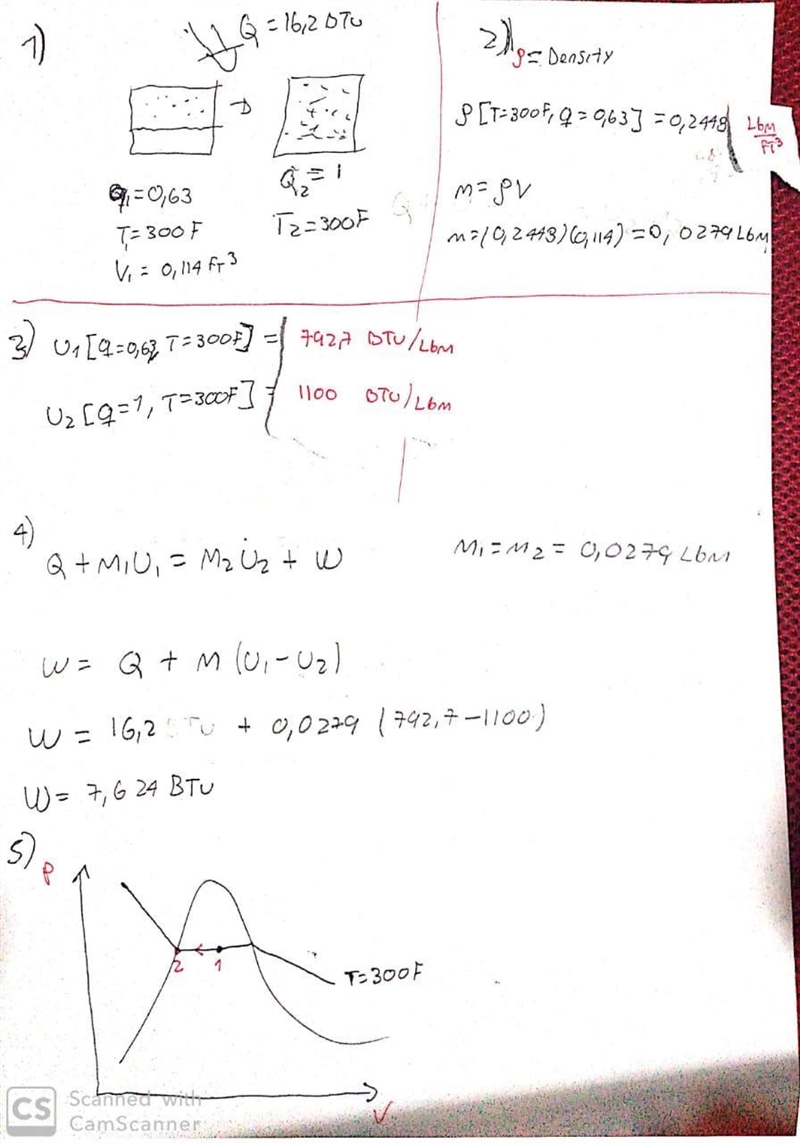 1)
Q = 16,2 BTU
q1 = 0,63
T1 = 300 F
V1 = 0,114 FT³
Q2 = 1
T2 = 300 F
2)
ρ = Density
ρ [T=300F, q = 0,63] = 0,2448 | LBM/FT³
m = ρV
m = (0,2448)(0,114) = 0,0279 LBM
3) U1 [q=0,63, T=300F] = 792,7 BTU/LBM
U2 [q=1, T=300F] = 1100 BTU/LBM
4)
Q + M1U1 = M2U2 + W
M1 = M2 = 0,0279 LBM
W = Q + M (U1 - U2)
W = 16,2 BTU + 0,0279 (792,7 - 1100)
W = 7,624 BTU
5)
P
2 1
T=300F
V
CS Scanned with
CamScanner